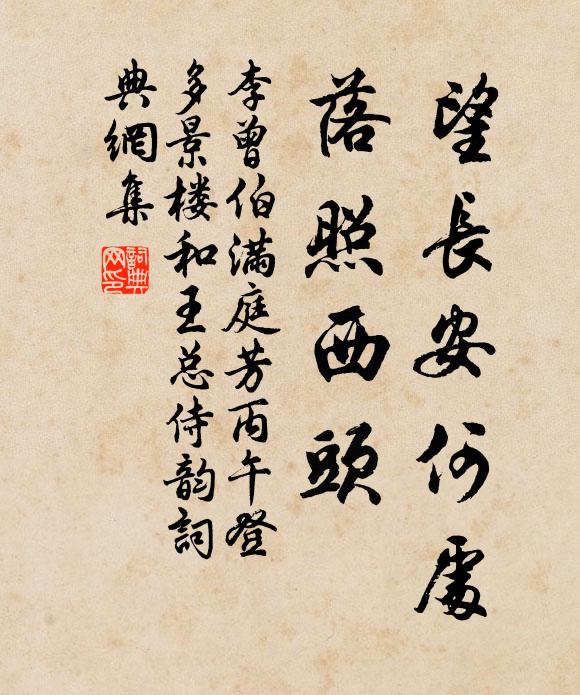 望長安何處
落照西頭
李曾伯滿庭芳丙午登
多景楼和王总侍韵詞
典網集
詞典
网印